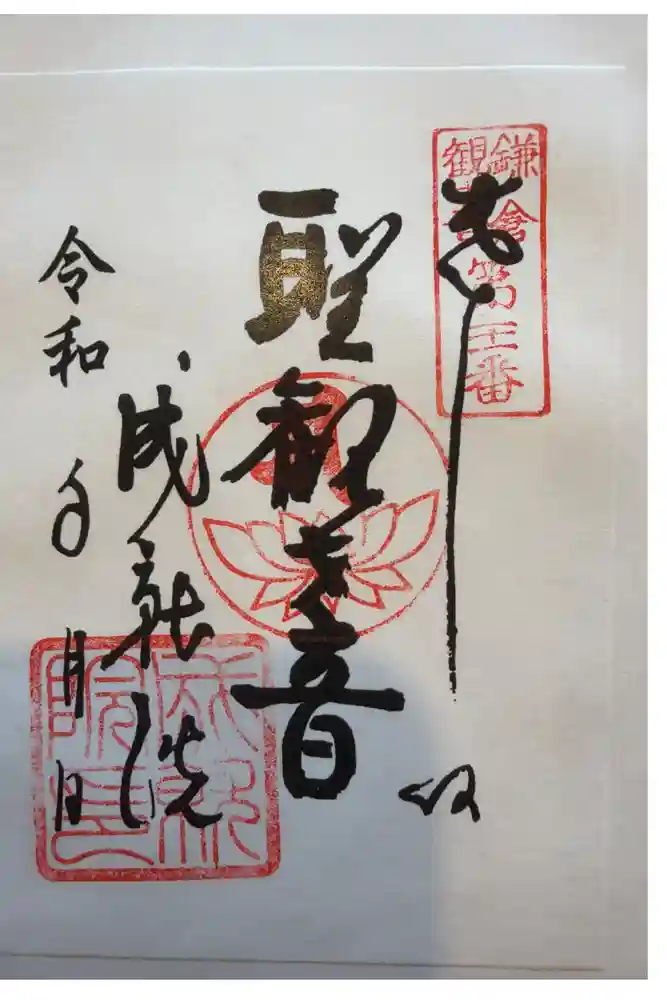 鎌倉
観音
第廿一番
奉拝
聖観世音
成就院
令和 年 月 日